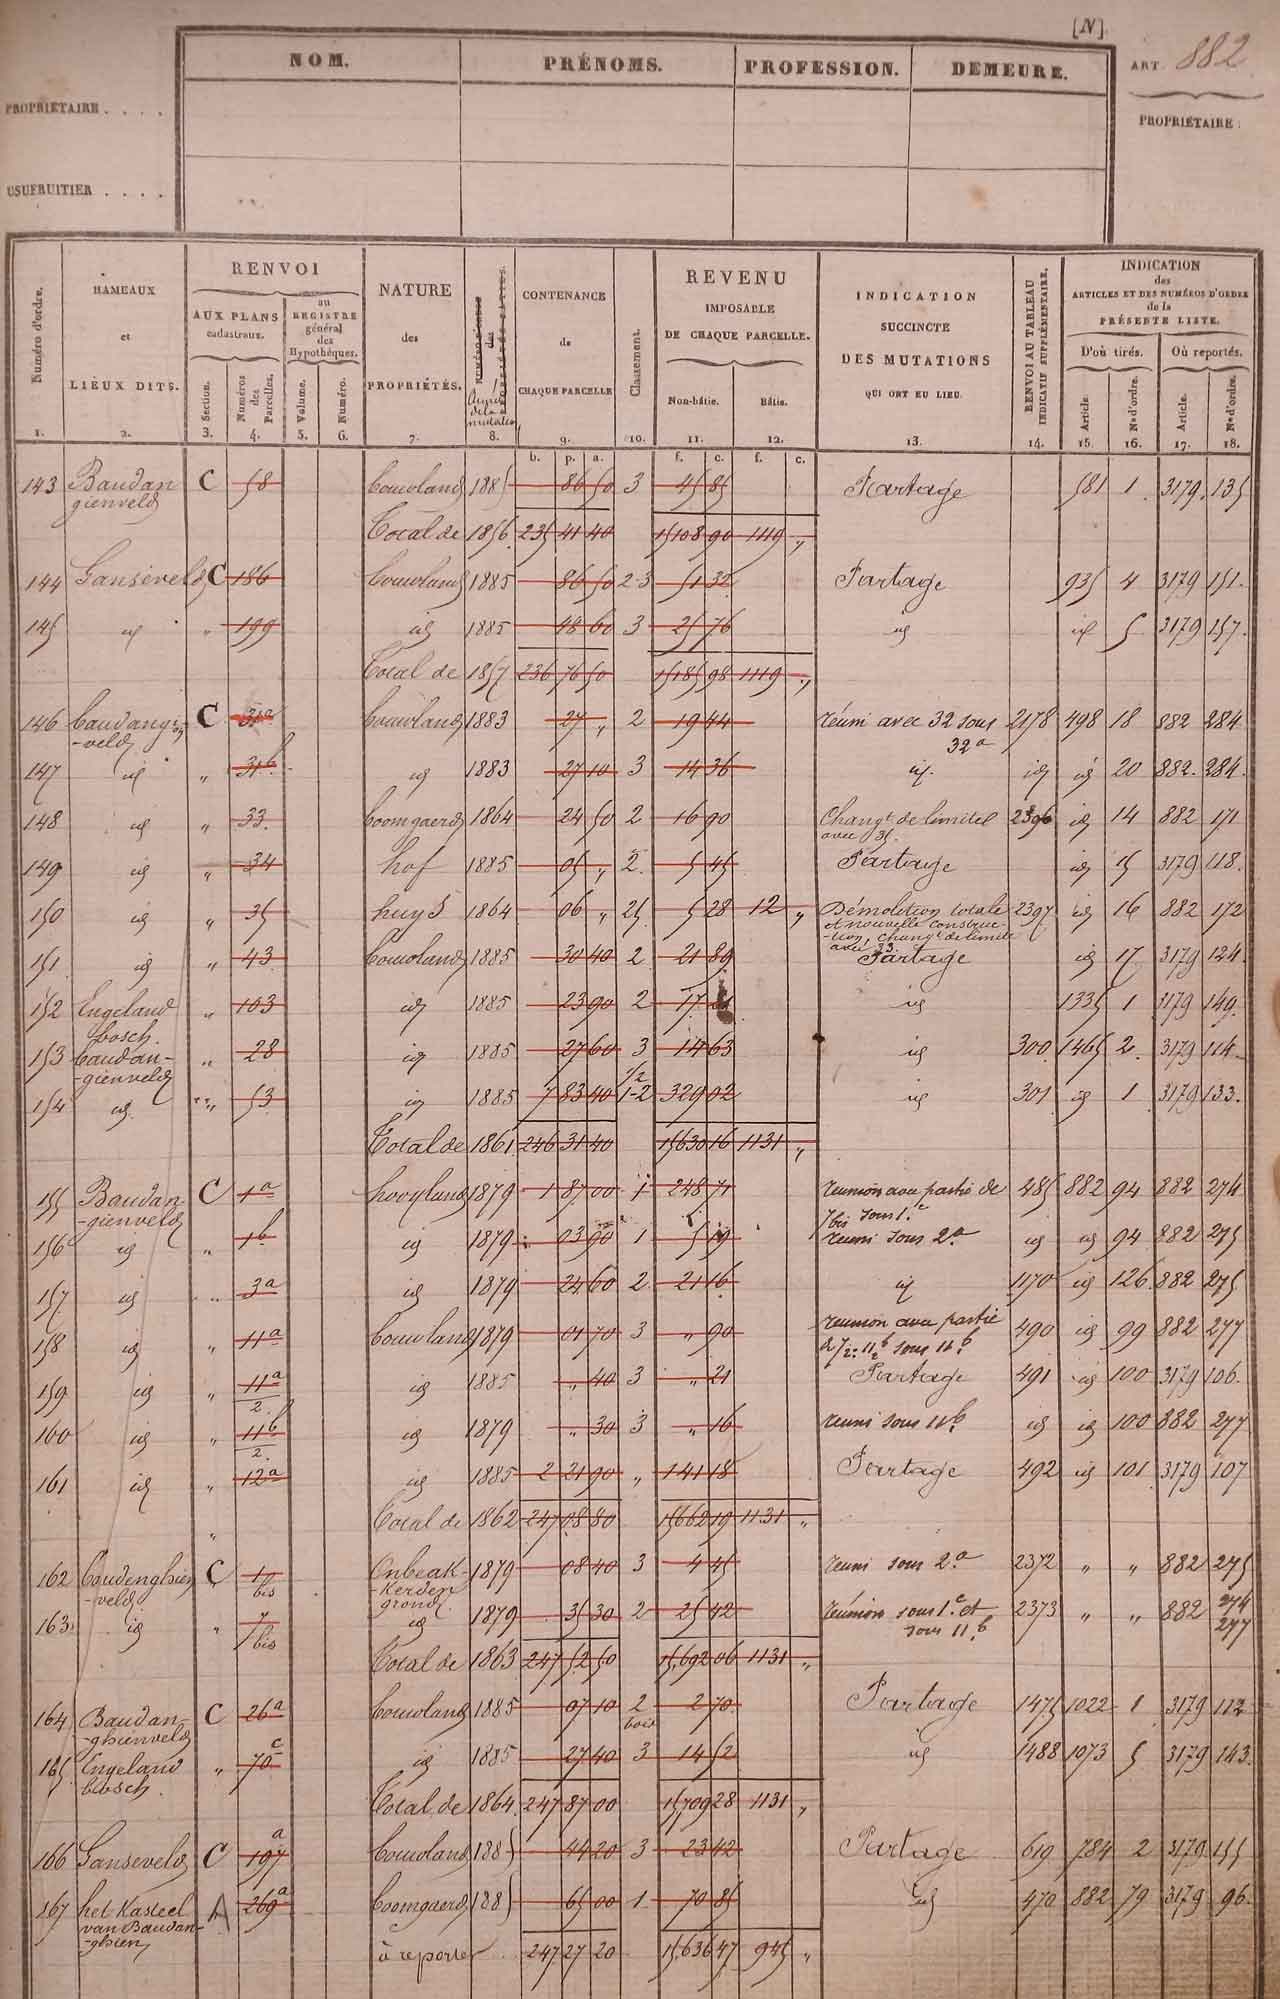 [N]
NOM. PRÉNOMS. PROFESSION. DEMEURE. ART. 882
PROPRIÉTAIRE . . . .
PROPRIÉTAIRE :
USUFRUITIER . . . .
Numéro d'ordre. 1.
HAMEAUX et LIEUX DITS. 2.
RENVOI
AUX PLANS cadastraux.
Section. 3.
Numéros des Parcelles. 4.
au REGISTRE général des Hypothèques.
Volume. 5.
Numéro. 6.
NATURE des PROPRIÉTÉS. 7.
Année de la mutation 8.
CONTENANCE de CHAQUE PARCELLE 9.
Classement. 10.
REVENU IMPOSABLE DE CHAQUE PARCELLE.
Non-bâtie. 11.
Bâtie. 12.
INDICATION SUCCINCTE DES MUTATIONS QUI ONT EU LIEU. 13.
RENVOI AU TABLEAU INDICATIF SUPPLÉMENTAIRE. 14.
INDICATION des ARTICLES ET DES NUMÉROS D'ORDRE de la PRÉSENTE LISTE.
D'où tirés. Où reportés.
Article. 15. Nos d'ordre. 16. Article. 17. Nos d'ordre. 18.
b. p. a. f. c. f. c.
143 Baudan gienveld C 58 bouwland 1885 86 50 3 45 85 Partage 581 1 3179 135
Total de 1856 235 41 40 15108 90 1119 „
144 Ganseveld C 186 bouwland 1885 86 50 2-3 51 32 Partage 935 4 3179 151.
145 id „ 199 id 1885 48 60 3 25 76 id id 5 3179 157.
Total de 1857 236 76 50 15185 98 1119 „
146 -veld C 31a bouwland 1883 27 „ 2 19 44 réuni avec 32 sous 32a 2178 498 18 882 284
147 id „ 31b id 1883 27 10 3 14 36 id. id id 20 882. 284.
148 id „ 33. boomgaerd 1864 24 50 2 16 90 Changt de limites avec 35. 2396 id 14 882 171
149 id „ 34 hof 1885 05 „ 2. 5 45 Partage id 15 3179 118.
150 id „ 35 huys 1864 06 „ 5 28 12 „ Démolition totale et nouvelle construc--tion, changt de limite avec 33. 2397 id 16 882 172
151 id „ 43 bouwland 1885 30 40 2 21 89 Partage id 17 3179 124.
152 Engeland bosch. „ 103 id 1885 23 90 2 17 id 1335 1 3179 149.
153 baudan--gienveld „ 28 id 1885 27 60 3 14 63 id 300 1465 2. 3179 114.
154 id. „ 53 id 1885 7 83 40 1-2 329 02 id 301 id 1 3179 133.
Total de 1861 246 31 40 15630 16 1131 „
155 Baudan -gienveld C 1a hooyland 1879 1 87 00 1 248 71 réunion avec partie de 7bis sous 1.c 485 882 94 882 274
156 id „ 1b id 1879 03 90 1 5 19 réuni sous 2a id id 94 882 275
157 id „ 3a id 1879 24 60 2 21 16 id 1170 id 126 882 275
158 id „ 11a bouwland 1879 01 70 3 „ 90 réunion avec partie sous 11.b 490 id 99 882 277
159 id „ 11a/2. id 1885 „ 40 3 „ 21 Partage 491 id 100 3179 106.
160 id „ 11b/2. id 1879 „ 30 3 „ 16 réuni sous 11b id id 100 882 277
161 id „ 12a id 1885 2 21 90 „ 141 18 Partage 492 id 101 3179 107
„ Total de 1862 247 08 80 15662 19 1131 „
162 -veld C 1 bis Onbeak--kerden grond. 1879 08 40 3 4 45 réuni sous 2.a 2372 „ „ 882 275
163 id „ 7 bis id 1879 35 30 2 25 42 réunion sous 1.c et sous 11.b 2373 „ „ 882 274 277
Total de 1863 247 52 50 15,692 06 1131 „
164 Baudan--ghienveld C 26a bouwland 1885 07 10 2 bois 2 70 Partage 1475 1022 1 3179 112
165 Engeland bosch. „ 70c id 1885 27 40 3 14 52 id 1488 1073 5 3179 143.
Total de 1864 247 87 00 15,709 28 1131 „
166 Ganseveld C 197a bouwland 1885 44 20 3 23 42 Partage 619 784 2 3179 155
167 het Kasteel van Baudan--ghien A 269a boomgaerd 1885 65 00 1 70 85 id 470 882 79 3179 96.
à reporter 247 27 20 15,636 47 945 „